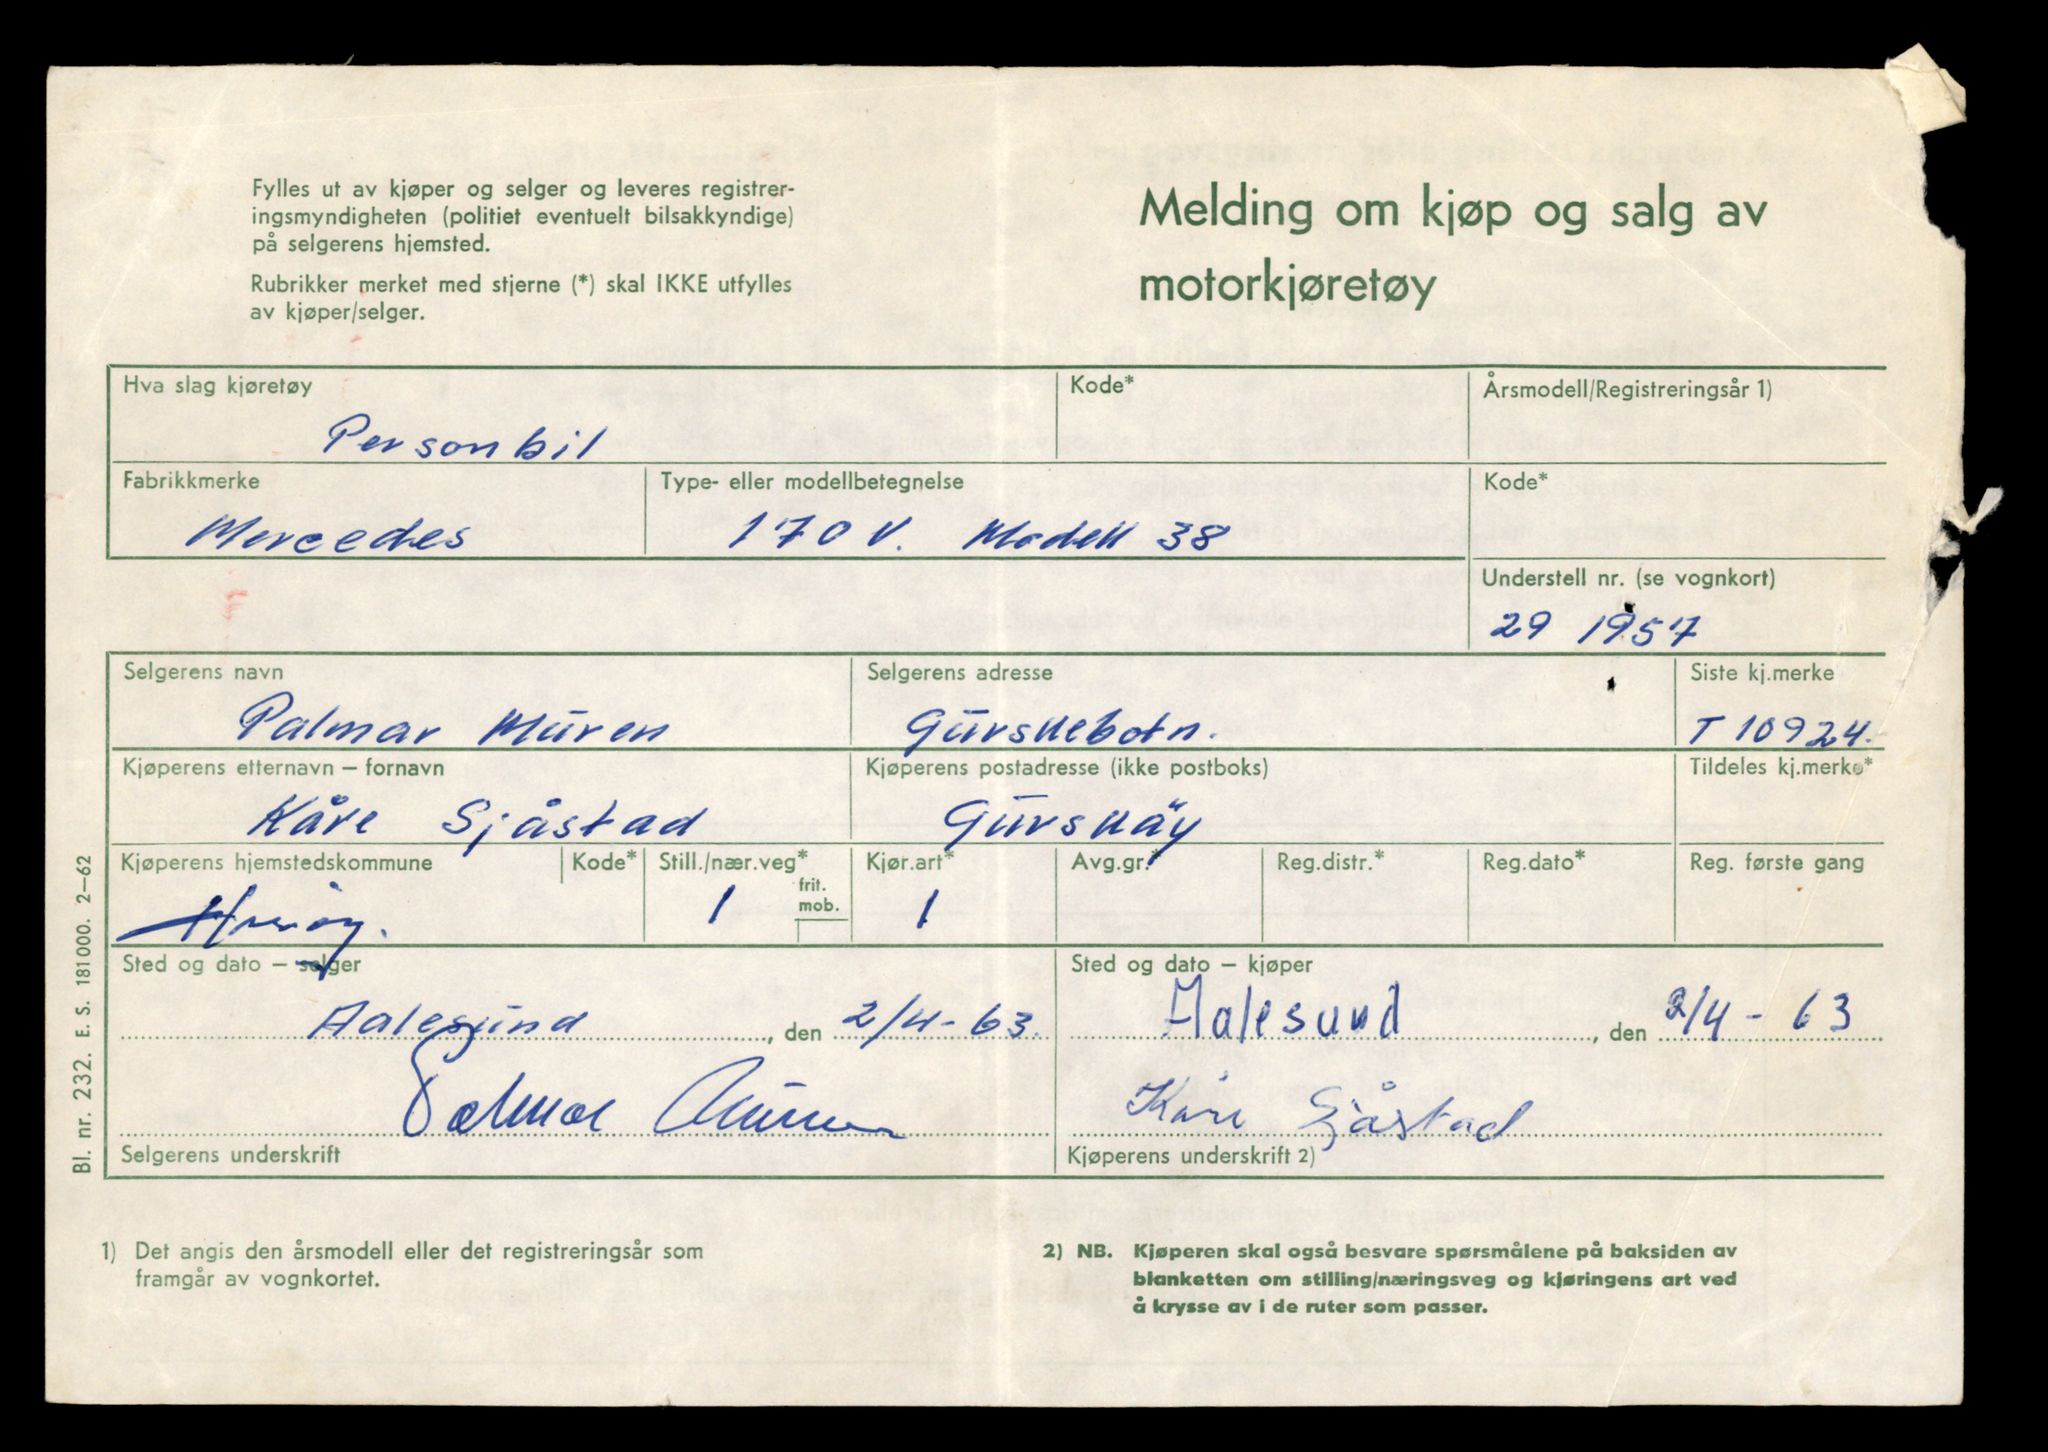 Fylles ut av kjøper og selger og leveres registrer-
ingsmyndigheten (politiet eventuelt bilsakkyndige)
på selgerens hjemsted.
Rubrikker merket med stjerne (*) skal IKKE utfylles
av kjøper/selger.
Melding om kjøp og salg av
motorkjøretøy
Hva slag kjøretøy
Kode*
Årsmodell/Registreringsår 1)
Personbil
Fabrikkmerke
Type- eller modellbetegnelse
Kode*
Mercedes
170 V. Modell 38
Understell nr. (se vognkort)
29 1957
Selgerens navn
Selgerens adresse
Siste kj.merke
Palmar Muren
Gurskebotn.
T 10924.
Kjøperens etternavn – fornavn
Kjøperens postadresse (ikke postboks)
Tildeles kj.merke*
Kåre Sjåstad
Gurskøy
Kjøperens hjemstedskommune
Kode*
Still./nær.veg*
frit.
mob.
Kjør.art*
Avg.gr.*
Reg.distr.*
Reg.dato*
Reg. første gang
1
1
Sted og dato – selger
Sted og dato – kjøper
Aalesund, den 2/4-63.
Aalesund, den 2/4 - 63
Palmar Muren
Kåre Sjåstad
Selgerens underskrift
Kjøperens underskrift 2)
1) Det angis den årsmodell eller det registreringsår som
framgår av vognkortet.
2) NB. Kjøperen skal også besvare spørsmålene på baksiden av
blanketten om stilling/næringsveg og kjøringens art ved
å krysse av i de ruter som passer.
Bl. nr. 232. E. S. 181000. 2–62